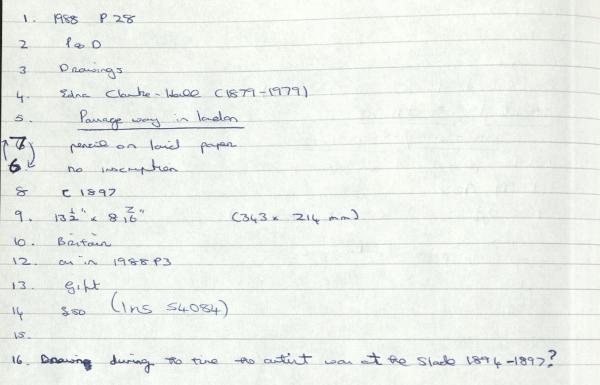 1. 1988 P 28
2 P&D
3 Drawings
4. Edna Clarke-Hall (1879-1979)
5. Passage way in London
7 pencil on laid paper
6. no inscription
8 c 1897
9. 13 1/2" x 8 7/16" (343 x 214 mm)
10. Britain
12. as in 1988 P3
13. Gift
14 £50 (Ins 54084)
15.
16. Drawing during the time the artist was at the Slade 1894-1897?